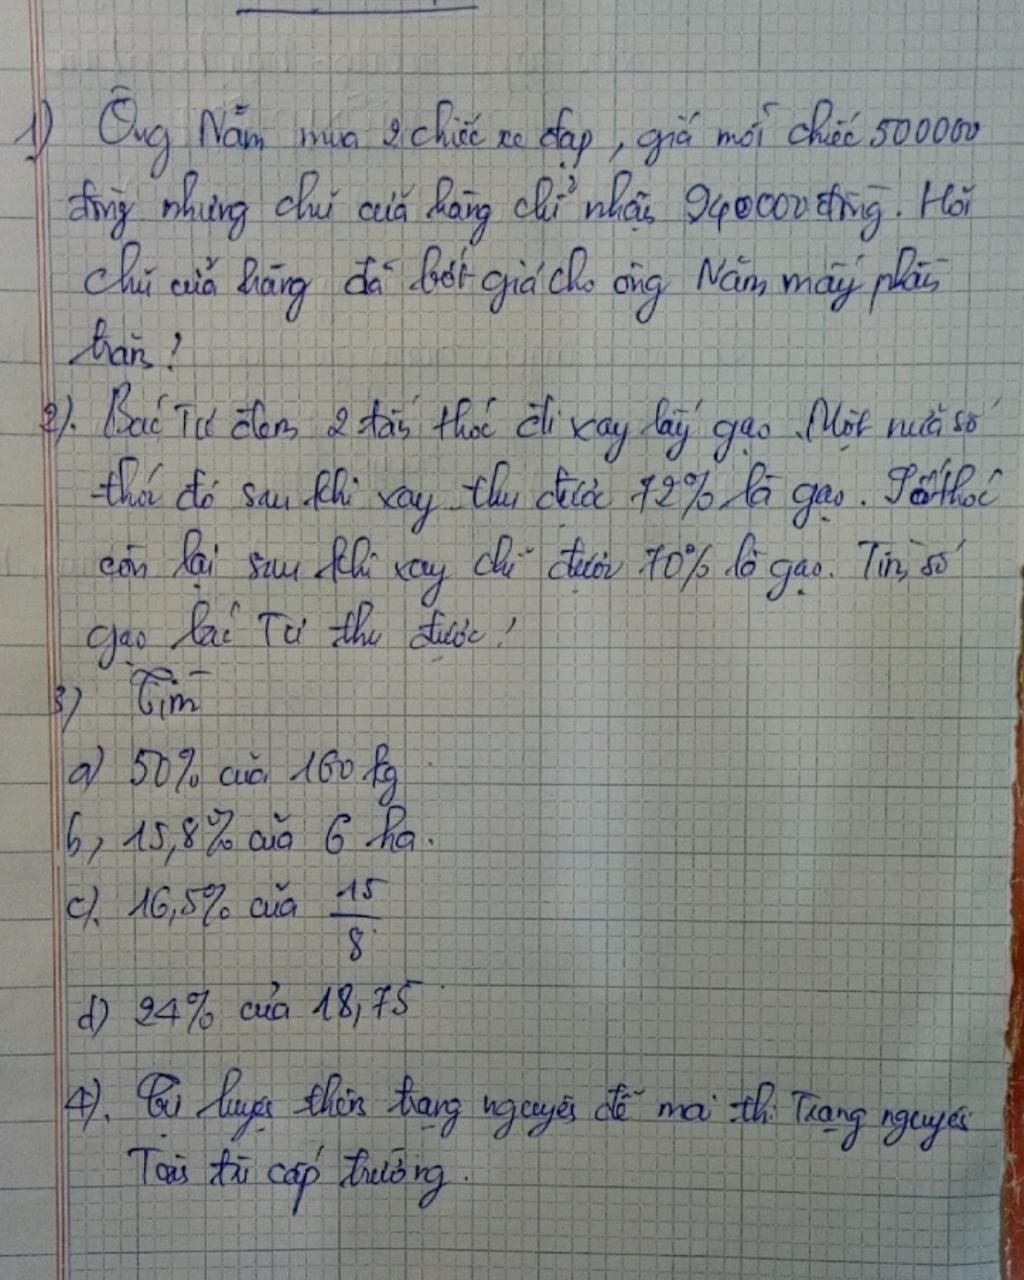 1) Ông Năm mua 2 chiếc xe đạp, giá mỗi chiếc 500000
đồng nhưng chủ cửa hàng chỉ nhận 940000 đồng. Hỏi
chủ cửa hàng đã bớt giá cho ông Năm mấy phần
trăm?
2). Bác Tư đem 2 tấn thóc đi xay lấy gạo. Một nửa số
thóc đó sau khi xay thu được 72% là gạo. Số thóc
còn lại sau khi xay chỉ được 70% là gạo. Tính số
gạo bác Tư thu được?
3) Tìm
a) 50% của 160 kg
b, 15,8% của 6 ha.
c). 16,5% của 15/8
d) 24% của 18,75
4). Tự luyện thêm trạng nguyên để mai thi Trạng nguyên
Toàn tài cấp trường.